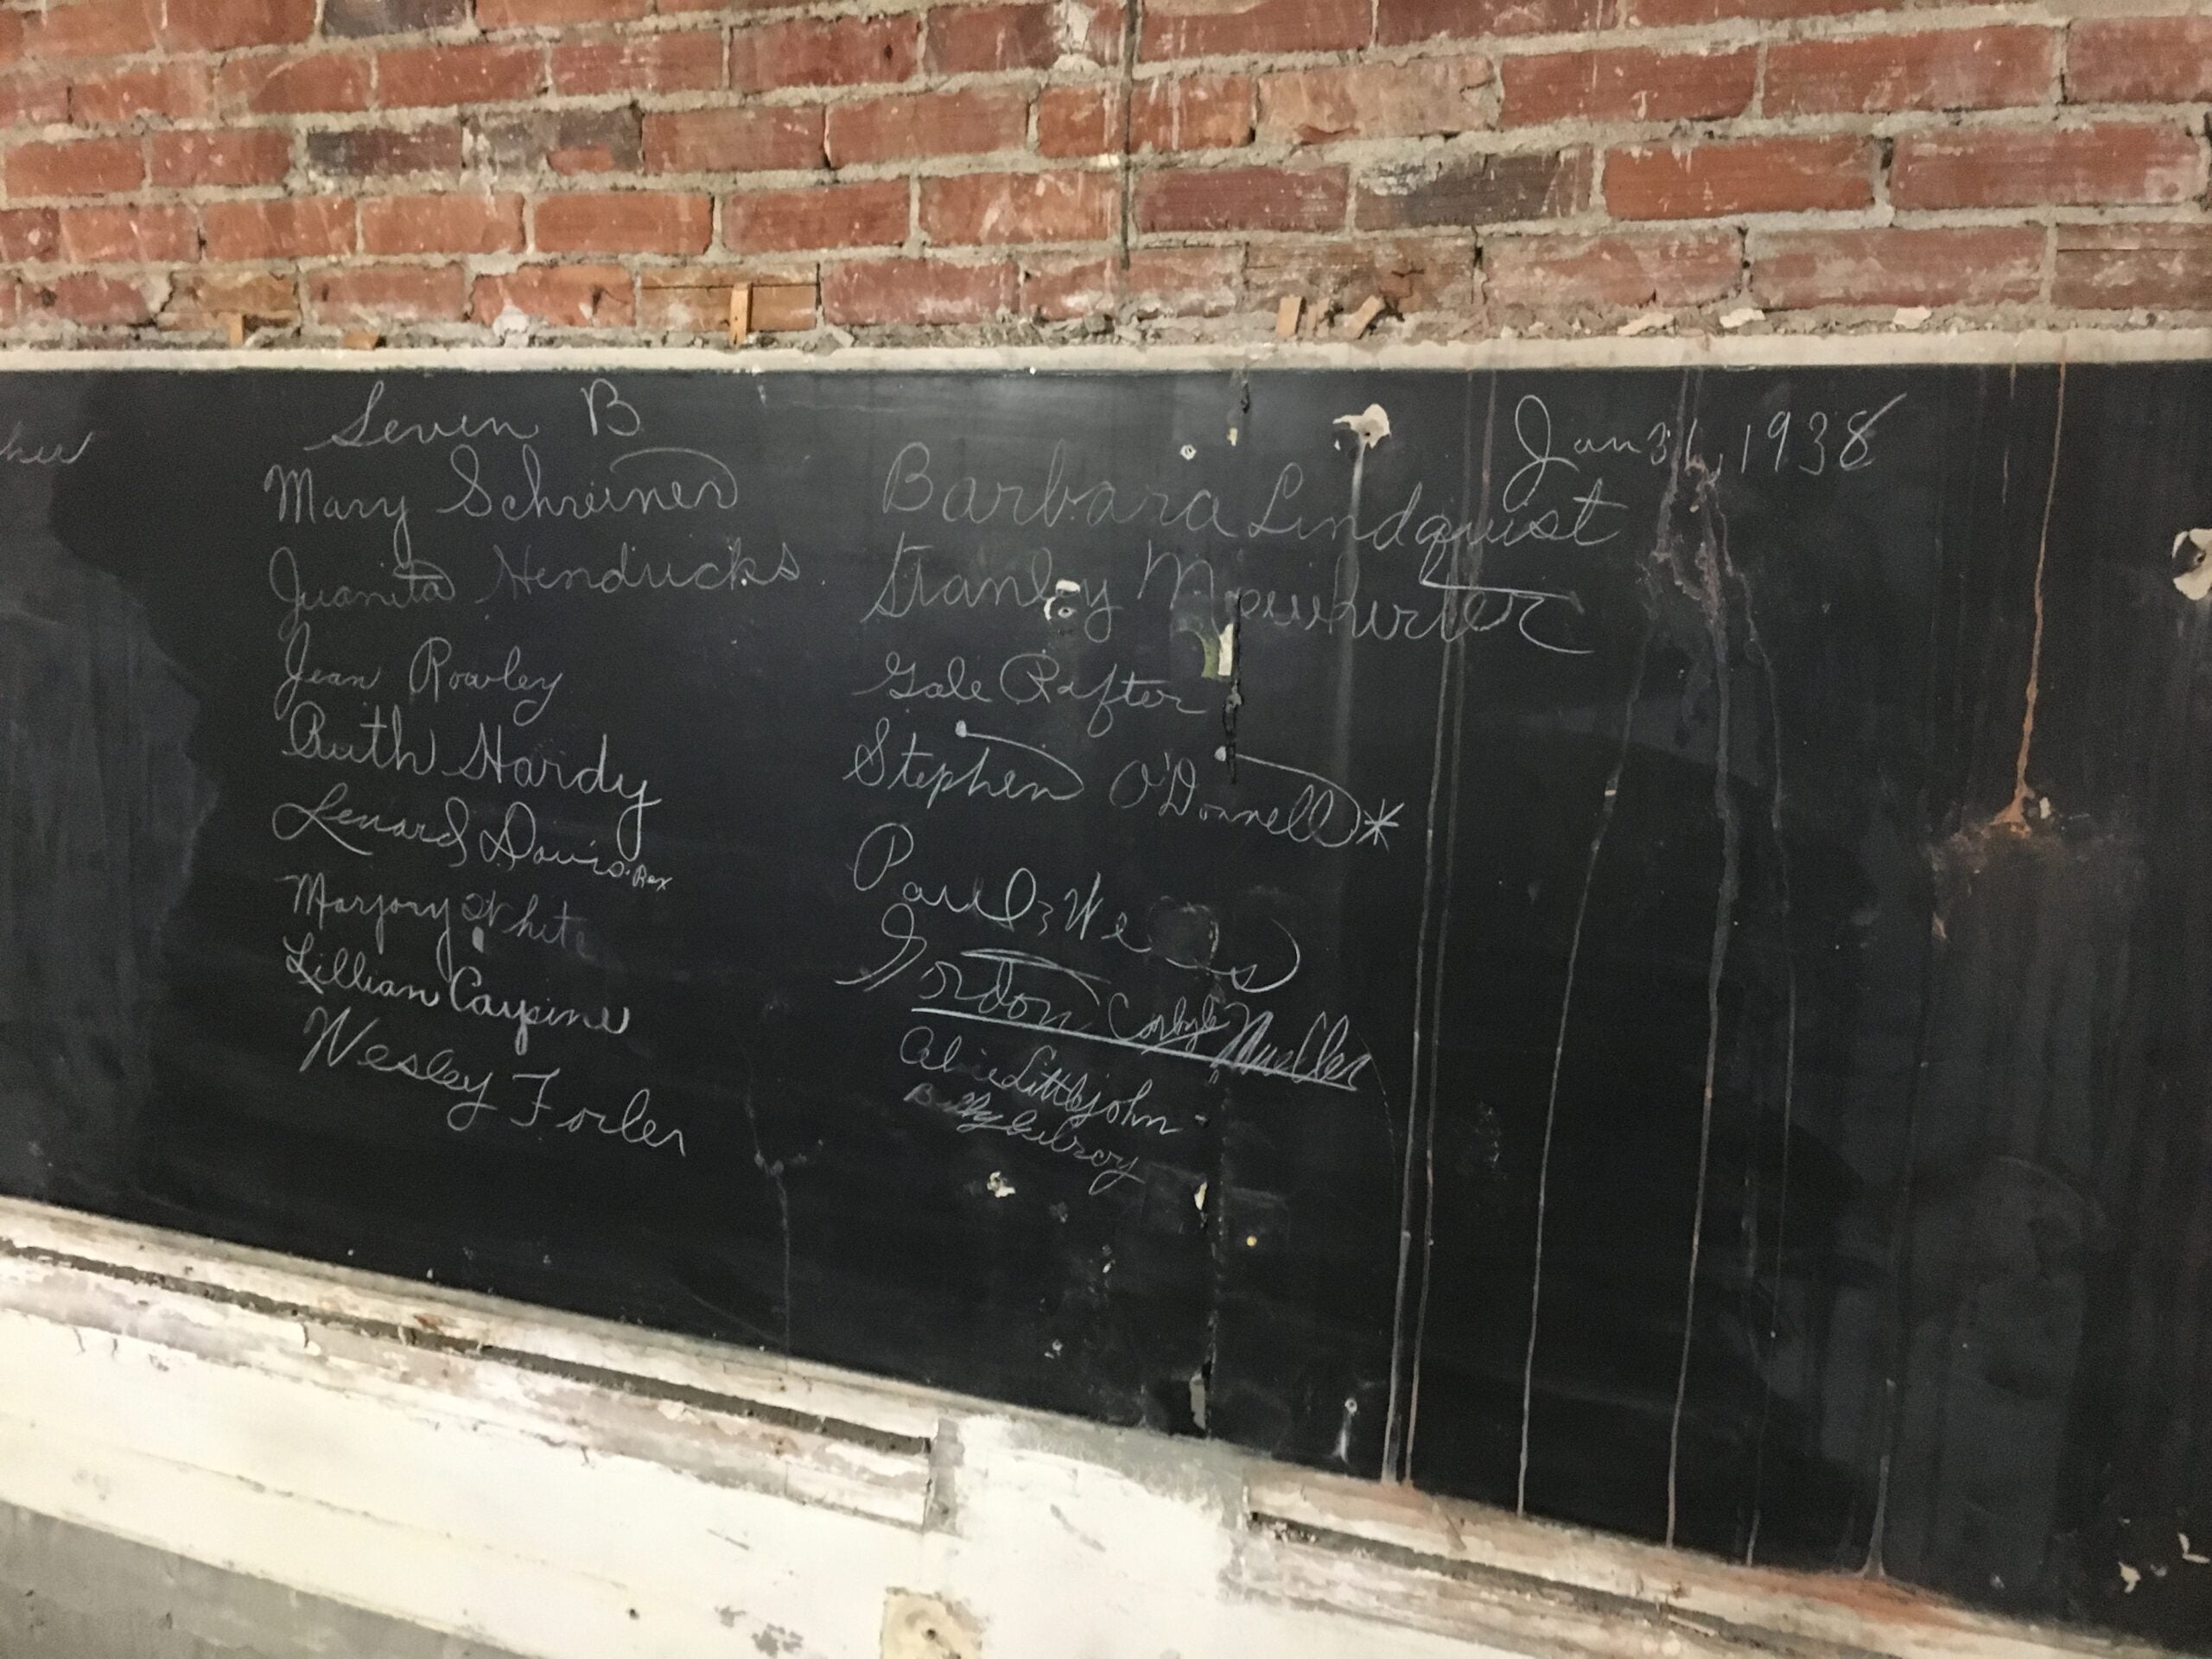 Seven B
Jan 31, 1938
Mary Schreiner
Juanita Hendricks
Jean Rowley
Ruth Hardy
Lenard Davis. Rex
Marjory White
Lillian
Wesley Forler
Barbara Lindquist
Stanley
Gale Rafter
Stephen O'Donnell*
Paul Weis
Gordon Mueller
Alice Littlejohn
Billy Gilroy